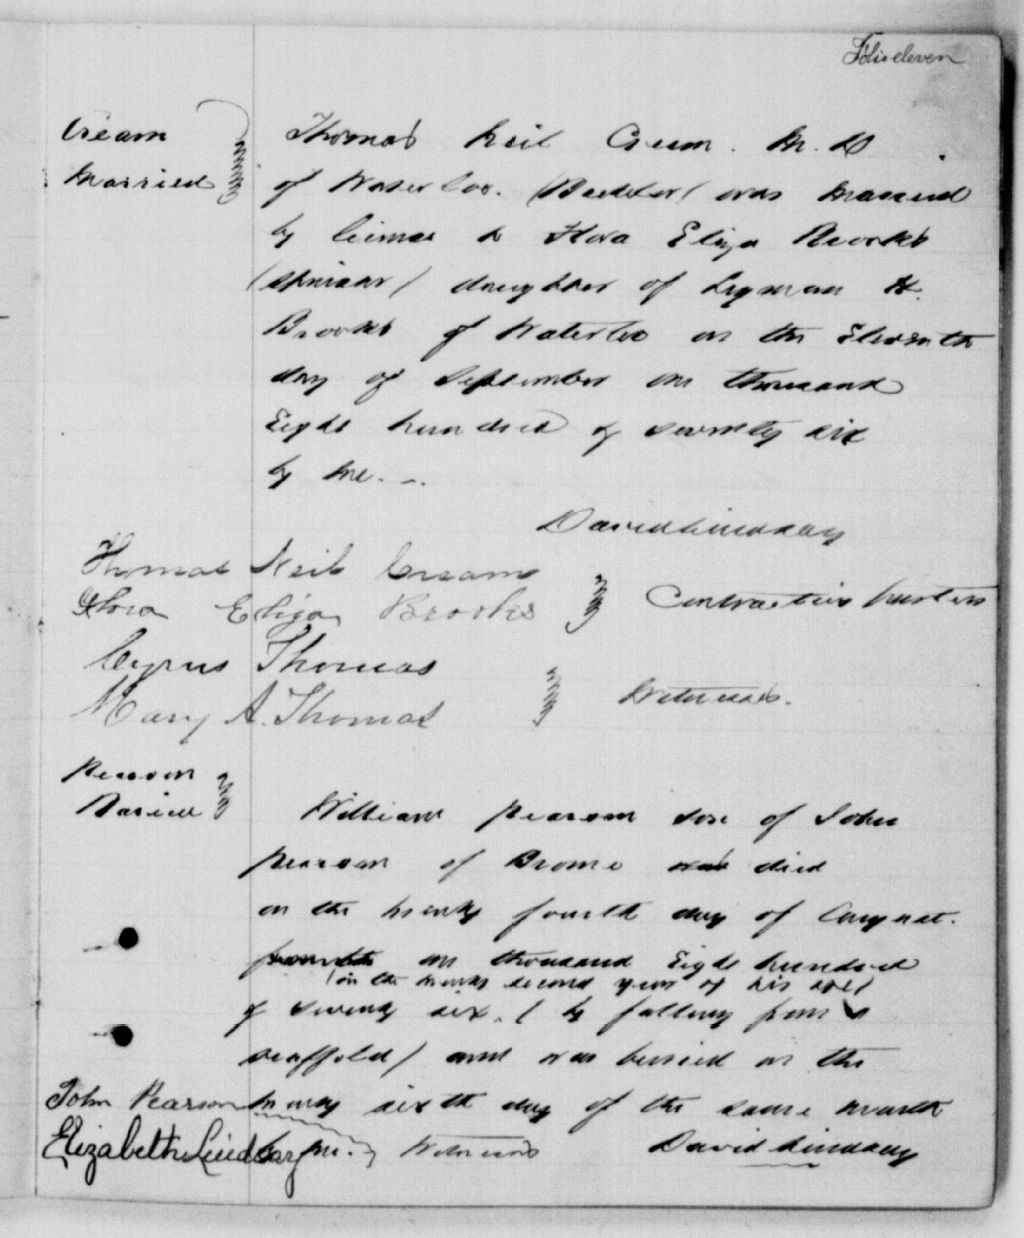 Folio eleven
Cream
Married
Thomas Neil Cream. M. D
of Waterloo. (Bachelor) was married
by license to Flora Eliza Brooks
(spinster) daughter of Lyman H.
Brooks of Waterloo on the Eleventh
day of September one thousand
Eight hundred & seventy six
by me.
David Lindsay
Thomas Neil Cream
Flora Eliza Brooks
Contracting parties
Cyrus Thomas
Mary A. Thomas
Witnesses.
Pearson
Buried
William Pearson son of John
Pearson of Brome died
on the twenty fourth day of August.
one thousand Eight hundred
(in the twenty second year of his age)
& seventy six. ( by falling from a
scaffold) and was buried on the
John Pearson twenty sixth day of the same month
Elizabeth Lindsay by me. Witnesses David Lindsay